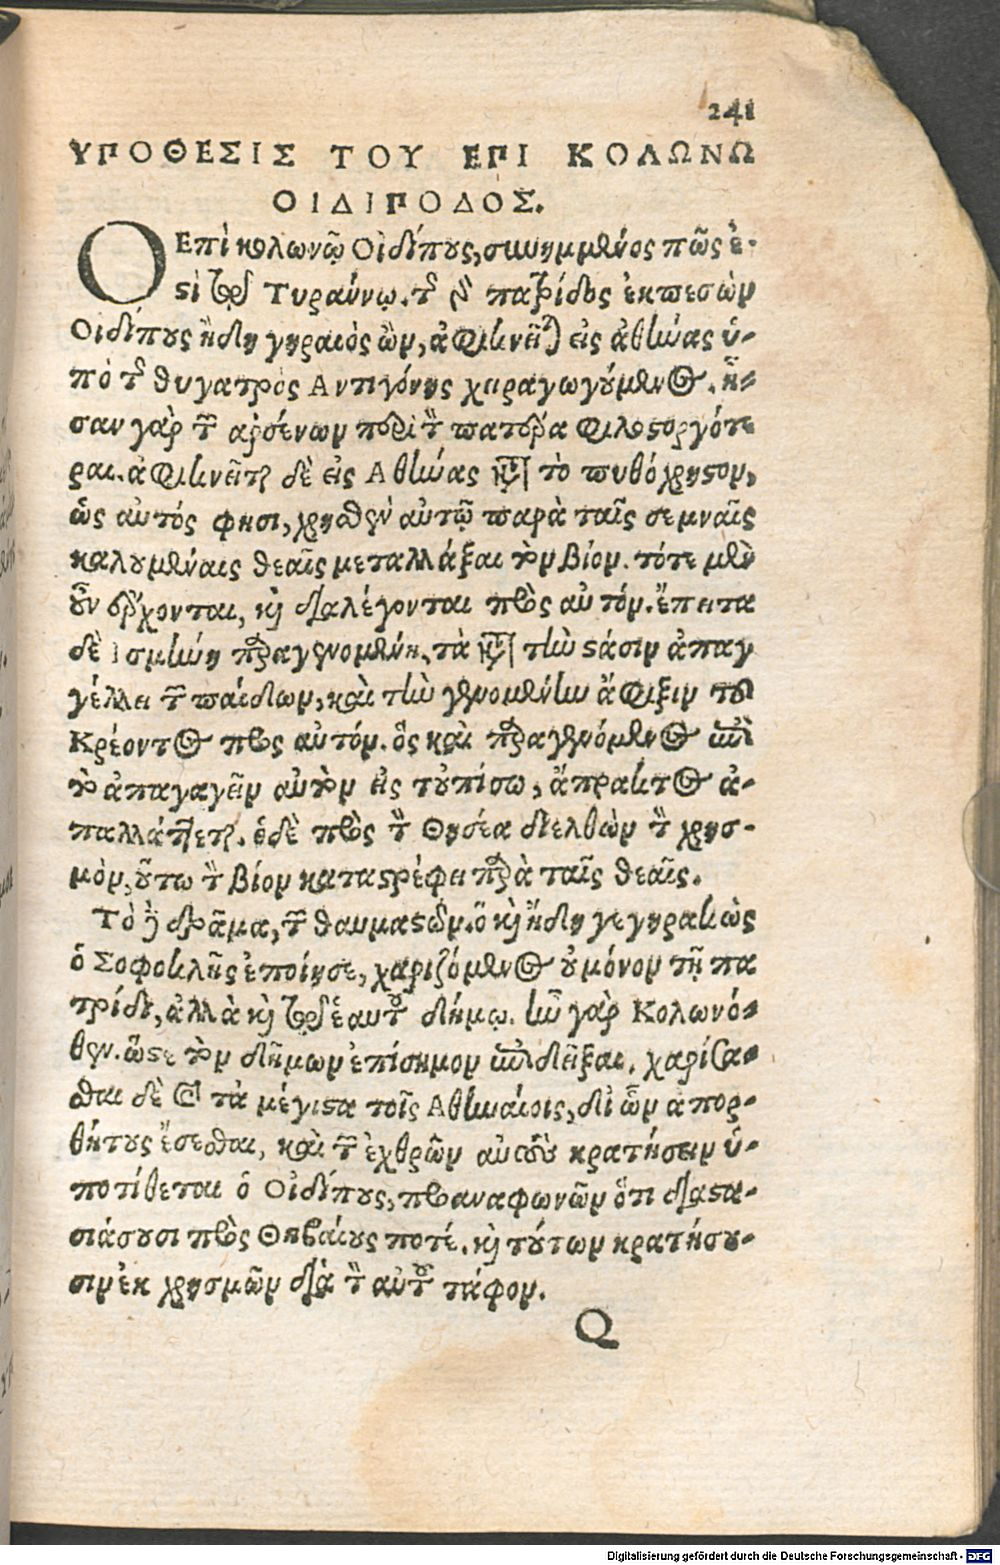 241
ΥΠΟΘΕΣΙΣ ΤΟΥ ΕΠΙ ΚΟΛΩΝΩ
ΟΙΔΙΠΟΔΟΣ.
Ο Επὶ κολωνῷ Οἰδίπους, συνημμένος πῶς ἐ-
στὶ τῷ Τυράννῳ. τῆς γὰρ πατρίδος ἐκπεσὼν
Οιδίπους ἤδη γηραιὸς ὢν, ἀφικνεῖται εἰς ἀθήνας ὑ-
πὸ τῆς θυγατρὸς Αντιγόνης χειραγωγούμενος. ἦ-
σαν γὰρ τῶν αρσένων περὶ τὸν πατέρα φιλοστοργότε
ραι. ἀφικνεῖται δὲ εἰς Αθήνας κατὰ τὸ πυθόχρηστον,
ὡς αυτός φησι, χρησθὲν αυτῷ παρὰ ταῖς σεμναῖς
καλουμέναις θεαῖς μεταλλάξαι τὸν βίον. τότε μὲν
οὖν ἔρχονται, καὶ διαλέγονται πρὸς αὐτόν. ἔπειτα
δὲ Ισμήνη παραγενομένη, τὰ κατὰ τὴν στάσιν ἀπαγ
γέλλει τῶν παίδων, καὶ τὴν γενομένην ἄφιξιν τοῦ
Κρέοντος πρὸς αὐτόν. ὃς καὶ παραγενόμενος ἐπὶ
τὸ ἀπαγαγεῖν αὐτὸν εἰς τοὐπίσω, ἄπρακτος ἀ-
παλλάττεται. ὁ δὲ πρὸς τὸν Θησέα διελθὼν τὸν χρησ-
μὸν, οὕτω τὸν βίον καταστρέφει παρὰ ταῖς θεαῖς.
Τὸ δὲ δρᾶμα, τῶν θαυμαστῶν. ὃ καὶ ἤδη γεγηρακὼς
ὁ Σοφοκλῆς ἐποίησε, χαριζόμενος οὐ μόνον τῇ πα
τρίδι, ἀλλὰ καὶ τῷ ἑαυτοῦ δήμῳ. ἦν γὰρ Κολωνό-
θεν. ὥστε τὸν δῆμον ἐπίσημον ἐπιδεῖξαι, χαρίσα-
σθαι δὲ καὶ τὰ μέγιστα τοῖς Αθηναίοις, δι' ὧν ἀπορ-
θήτους ἔσεσθαι, καὶ τῶν ἐχθρῶν αὐτοὺς κρατήσειν ὑ-
ποτίθεται ὁ Οἰδίπους, προαναφωνῶν ὅτι διαστα-
σιάσουσι πρὸς Θηβαίους ποτέ. καὶ τούτων κρατήσου-
σιν ἐκ χρησμῶν διὰ τὸν αὐτοῦ τάφον.
Q
Digitalisierung gefördert durch die Deutsche Forschungsgemeinschaft - DFG